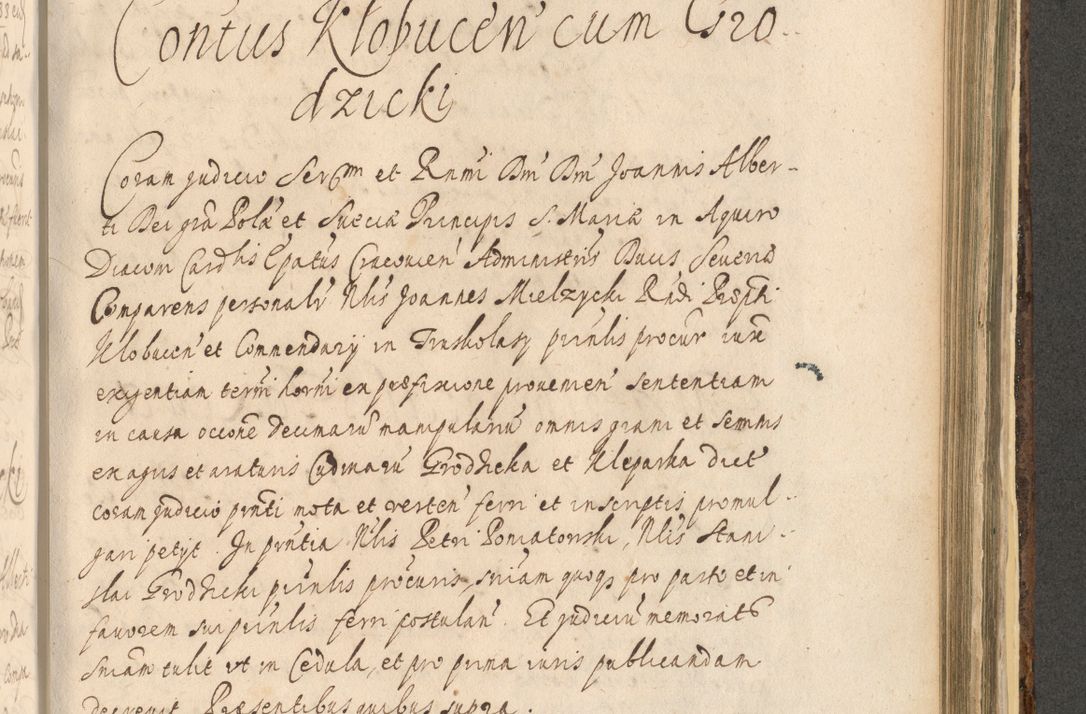 Contus Kłobucen̄ cum Gro-
dzicki
Coram judicio Serm̄ et Rnm̄i Dn̄i Dn̄i Joannis Alber-
ti Dei gr̄a Polæ et Sueciæ Principis S. Mariæ in Aquiro
Diaconi Card̄lis Ep̄atus Cracovien̄ Administr̄is Ducis Severiæ
Comparens personalr̄ Nlis Joannes Mielzycki Rn̄di Præp̄ti
Kłobucen̄ et Commendarij in Truskolasy prin̄lis procur̄ iux̄
exigentiam term̄i horn̄i ex præfixione provenien̄ sententiam
in causa occōne decimarū manipulariū omnis grani et seminis
ex agris et araturis Cudmarū Grodzicka et Kleparka dict̄
coram judicio prn̄ti mota et verten̄ ferri et in scriptis promul-
gari petijt. In prn̄tia Nlis Petri Poniatowski, Nlis Stani-
slai Grodzicki prin̄lis procūris, sn̄iam quoq pro parte et in
favorem sui prin̄lis ferri postulan̄. Et judiciū memorat̄
sn̄iam tulit ut in Cedula, et pro prima iuris publicandam
decrevit. Præsentibus quibus supra.